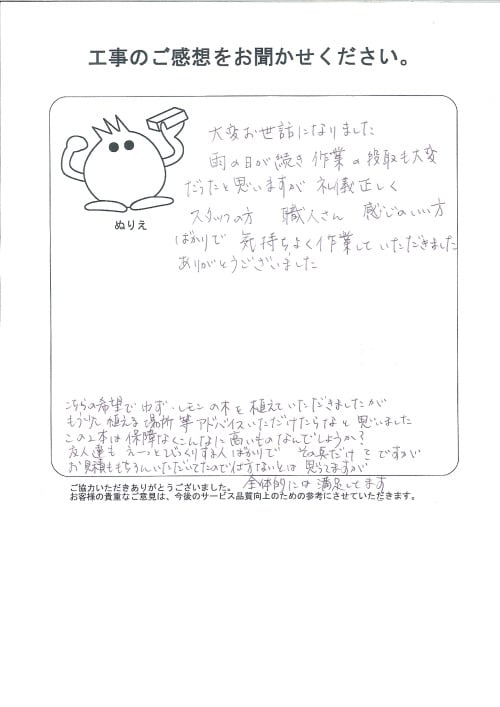 工事のご感想をお聞かせください。
大変お世話になりました
雨の日が続き 作業の段取も大変
だったと思いますが 礼儀正しく
スタッフの方 職人さん 感じのいい方
ばかりで 気持ちよく作業していただきました
ありがとうございました
ぬりえ
こちらの希望で ゆず・レモンの木を植えていただきましたが
もう少し植える場所等アドバイスいただけたらなと思いました
この2本は保障なくこんなに高いものなんでしょうか?
友人達も えーっとびっくりする人ばかりで その点だけ です が
お見積ももちろんいただいてたので仕方ないとは思ってますが
全体的には満足してます
ご協力いただきありがとうございました。
お客様の貴重なご意見は、今後のサービス品質向上のための参考にさせていただきます。